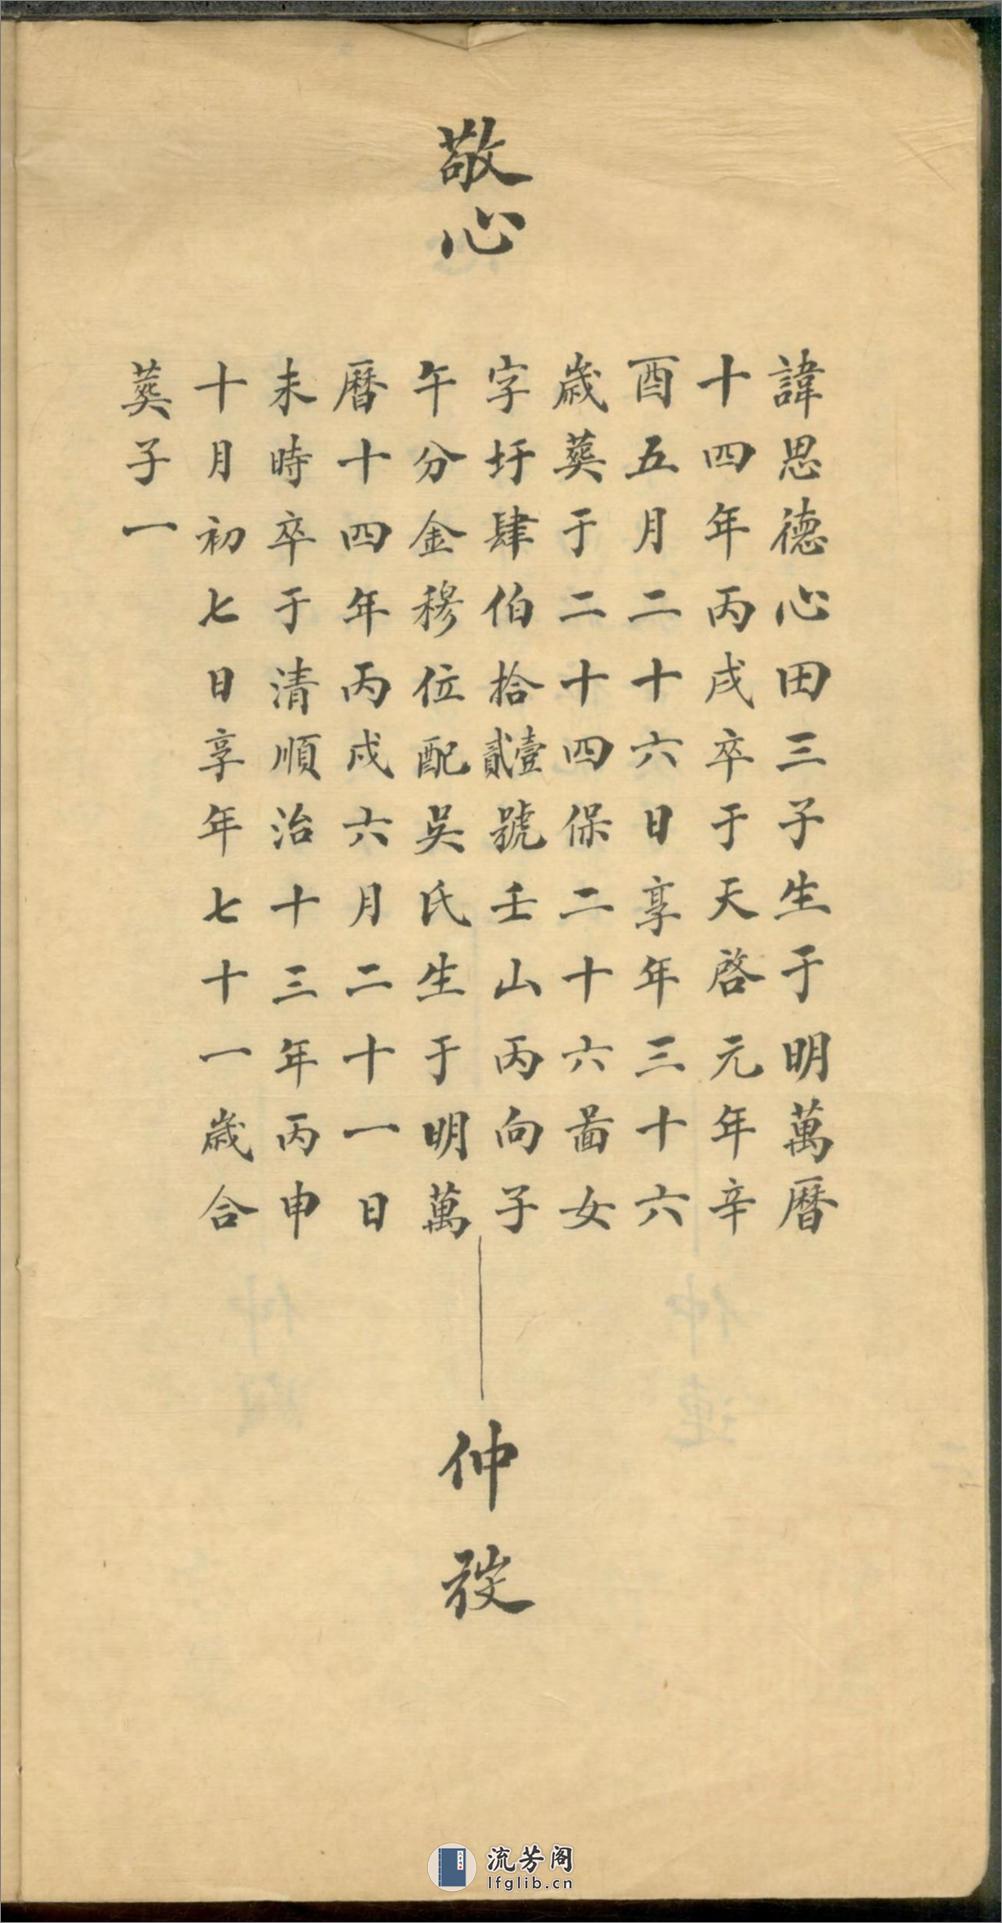 敬心
諱思德心田三子生于明萬曆
十四年丙戌卒于天啓元年辛
酉五月二十六日享年三十六
歲葬于二十四保二十六啚女
字圩肆伯拾壹貳號壬山丙向子
午分金穆位配吳氏生于明萬
曆十四年丙戌六月二十一日
未時卒于清順治十三年丙申
十月初七日享年七十一歲合
葬子一
仲
流芳阁
lfglib.cn